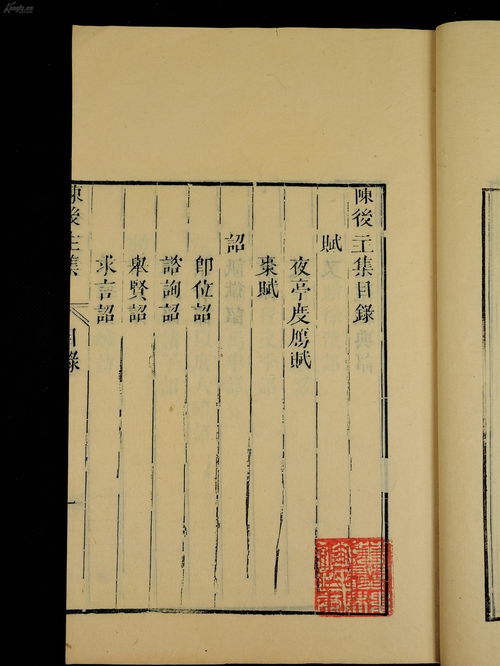 陳後主集目錄
賦
夜亭度鴈賦
棗賦
詔
卽位詔
諮詢詔
舉賢詔
求言詔
陳後主集
目錄
一